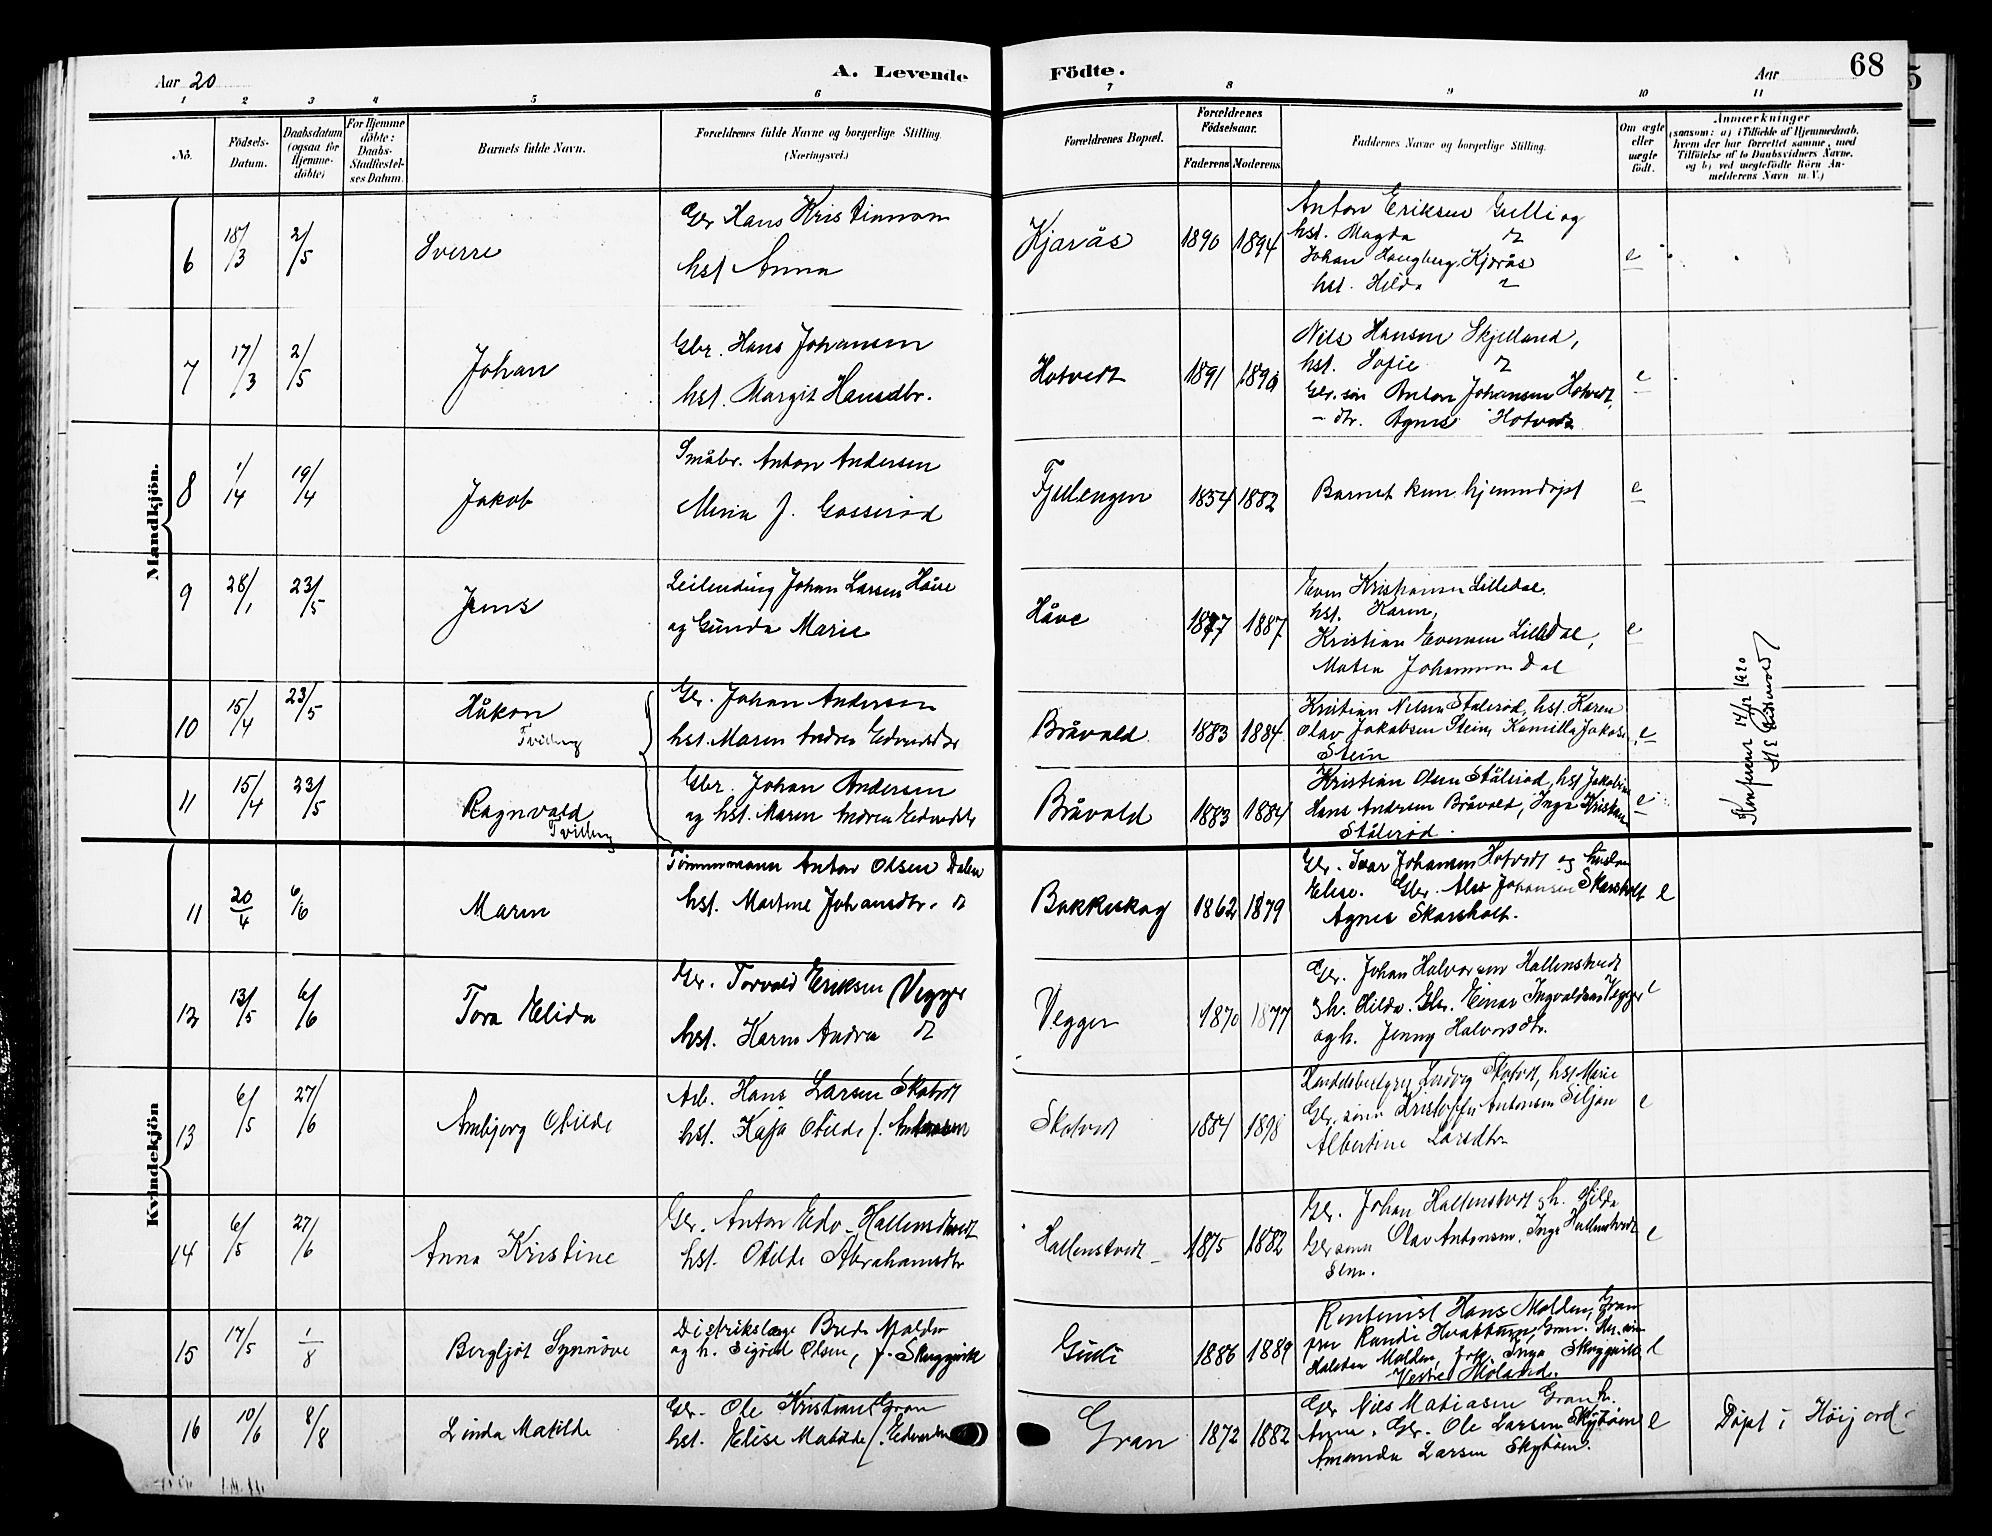 Aar 20
A. Levende
Födte.
Aar
68
1 2 3 4 5 6 7 8 9 10 11
No.
Födsels-Datum.
Daabsdatum (ogsaa for Hjemme-döbte)
For Hjemme döbte: Daabs-Stadfæstel-ses Datum.
Barnets fulde Navn.
Forældrenes fulde Navne og borgerlige Stilling.
(Næringsvei.)
Forældrenes Bopæl.
Forældrenes Födselsaar.
Faderens Moderens
Faddernes Navne og borgerlige Stilling.
Om ægte eller uægte födt.
Anmærkninger
(saasom: a) i Tilfælde af Hjemmedaab,
hvem der har forrettet samme, med
Tilföielse af to Daabsvidners Navne,
og b) ved uegtefödte Börn An-
melderens Navn m. V.)
Mandkjön.
6 18/3 2/5 Sverre
Gbr Hans Kristianson
hst Anna
Kjærås 1890 1894
Anton Eriksen Gulli og
hst. Magda
Johan Haugberg, Kjærås
hst. Hilda
e
7 17/3 2/5 Johan
Gbr. Hans Johansen
hst. Margit Hansdtr.
Hotvedt 1891 1890
Nils Hansen Skjelland,
hst. Sofie
Gbr. søn Anton Johansen Hotvedt,
— dtr. Agnes Hotvedt
e
8 1/14 19/4 Jakob
Småbr. Anton Andersen
Mina J. Gosserød
Fjellengen 1854 1882
Barnet kun hjemmdøpt
e
9 28/1 23/5 Jens
Leilending Johan Larsen Håve
og Gunda Marie
Håve 1877 1887
Even Kristiansen Lilledal.
hst. Karen,
Kristian Evensen Lilledal,
Matea Johannesen Dal
e
10 15/4 23/5 Håkon
Tvilling
Gbr. Johan Andersen
hst. Maren Andrea Edvardsdtr
Bråvald 1883 1884
Kristian Nilsen Stålerød, hst. Karen
Olav Jakobsen Stein, Kamilla Jakobs.
Stein
e
11 15/4 23/5 Ragnvald
Tvilling
Gbr. Johan Andersen
og hst. Maren Andrea Edvardsdtr
Bråvald 1883 1884
Kristian Olsen Stålerød, hst Jakobine
Hans Andersen Bråvald, Inga Kristians
Stålerød.
e
1920
Kvindekjön
11 20/4 6/6 Maren
Tømmermann Anton Olsen Dalen
hst. Martine Johansdtr.
Bakkeskog 1862 1879
Gbr. Ivar Johansen Hotvedt og hustru
Elise. Gbr. Also Johansen Skarsholt
Agnes Skarsholt.
e
12 13/5 6/6 Tora Elida
Gbr. Torvald Eriksen Vegger
hst. Karen Andrea
Vegger 1870 1877
Gbr. Johan Halvorsen Hallenstvedt
h. Hilda. Gbr. Einar Ingvaldsen Vegger
og h. Jenny Halvorsdtr.
e
13 6/5 27/6 Arnbjørg Otilde
Arb. Hans Larsen Skatvedt
hst. Kaja Otilde f. Antonsen
Skatvedt 1884 1898
Ludvig Skatvedt, hst Marie
Gbr. sønn Kristoffer Antonsen Siljan
Albertine Larsdtr.
e
14 6/5 27/6 Anna Kristine
Gbr. Anton Edv. Hallenstvedt
hst. Otilde Abrahamsdtr
Hallenstvedt 1875 1882
Gbr. Johan Hallenstvedt h. Hilda
Gbr sønn Olav Antonsen, Inga Hallenstvedt
e
15 17/5 1/8 Bergljot Synnøve
Distrikslæge Brede Molden
og h. Sigrid Olsen, f. Skuggevik
Gudi 1886 1889
Rentenist Hans Molden, Gran
fru Randi Hvattum, Gran.
Halsten Molden, frk. Inga Skuggevik,
e
16 10/6 8/8 Linda Matilde
Gbr. Ole Kristians. Gran
hst. Elise Matilde f. Edvardsen
Gran 1872 1882
Gbr Nils Matiasen Gran h.
Anna. Gbr. Ole Larsen Skybøen
Amanda Larsen Skybøen.
e Døpt i Høijord